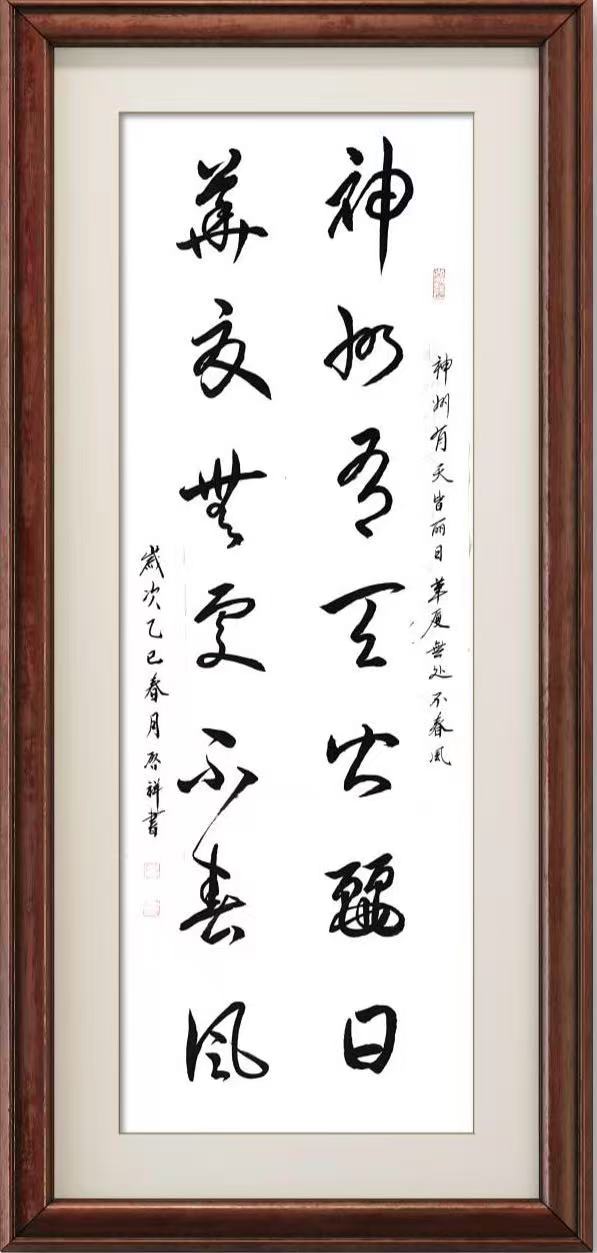 神州有天皆麗日
華夏無處不春風
神州有天皆丽日 華夏無处不春风
歲次乙巳春月啓祥書